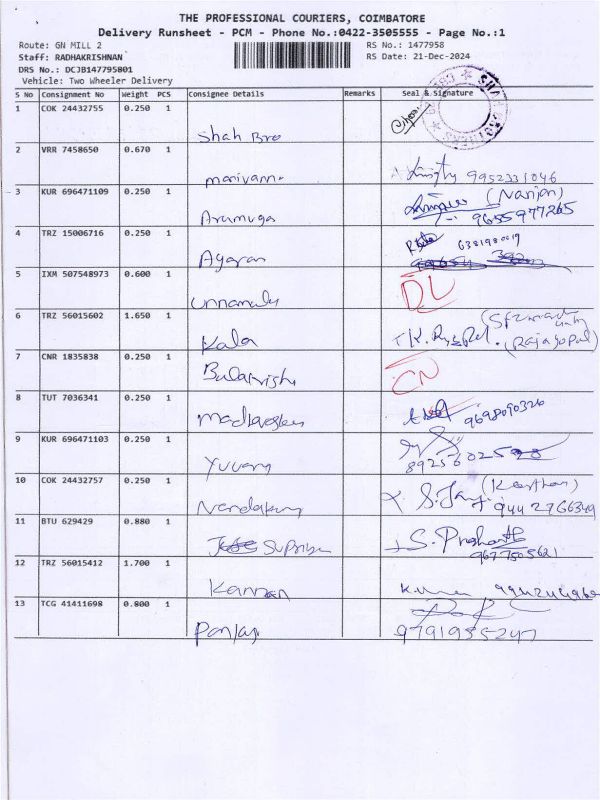 THE PROFESSIONAL COURIERS, COIMBATORE
Delivery Runsheet - PCM - Phone No.:0422-3505555 - Page No.:1
Route: GN MILL 2 RS No.: 1477958
Staff: RADHAKRISHNAN RS Date: 21-Dec-2024
DRS No.: DCJB147795801
Vehicle: Two Wheeler Delivery
S No Consignment No Weight PCS Consignee Details Remarks Seal & Signature
1 COK 24432755 0.250 1
Shah Bro
2 VRR 7458650 0.670 1
9952331046
3 KUR 696471109 0.250 1 (Nanjan)
Arumuga 9655977265
4 TRZ 15006716 0.250 1
Agaran
5 IXM 507548973 0.600 1 DL
unnamalu
6 TRZ 56015602 1.650 1
Kala (Rajagopal)
7 CNR 1835838 0.250 1 CN
8 TUT 7036341 0.250 1
9698090326
9 KUR 696471103 0.250 1
10 COK 24432757 0.250 1
9442766349
11 BTU 629429 0.880 1 S. Prshanth
Supriya 9677505621
12 TRZ 56015412 1.700 1
Kannan
13 TCG 41411698 0.800 1
9791955247